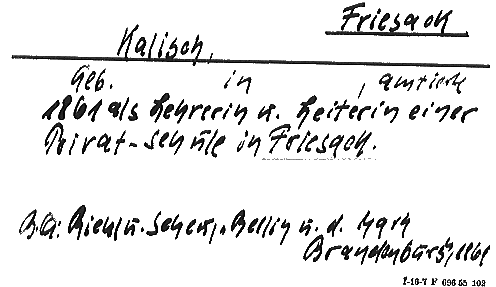 Friesack.
Kalisch,
Geb. in , amtierte
1861 als Lehrerin u. Leiterin einer
Privat-Schule in Friesack.
B.Qu: Riehl u. Scheu, Berlin u. d. Mark
Brandenburg, 1861